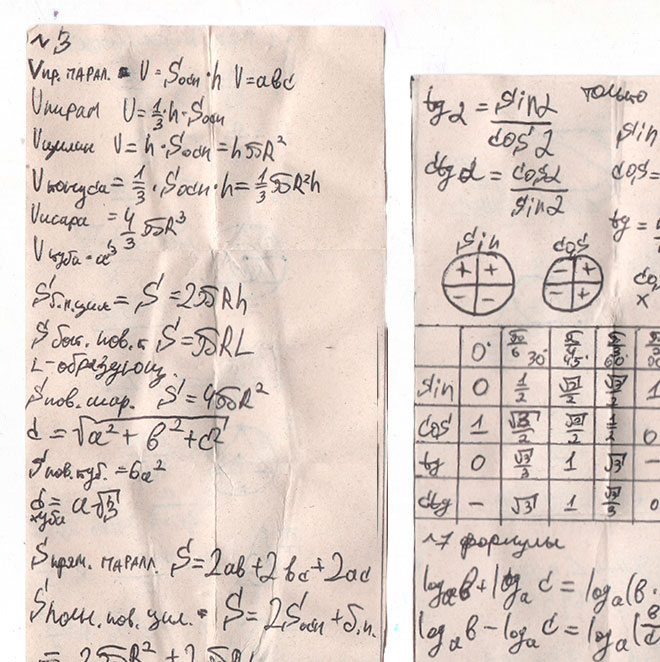 ~ 3
Vпр. парал. V = Sосн · h V = abc
Vпирам V = 1/3 · h · Sосн
Vцилин V = h · Sосн = hπR²
Vконуса = 1/3 · Sосн · h = 1/3 πR²h
Vшара = 4/3 πR³
Vкуба = a³
Sб.п.цил = S = 2πRh
Sбок. пов. к S = πRL
L - образующ.
Sпов. шар. S = 4πR²
d = √(a² + b² + c²)
Sпов. куб. = 6a²
d куба = a√3
Sпрям. паралл. S = 2ab + 2bc + 2ac
Sполн. пов. цил. S = 2Sосн + Sб.п.
= 2πR² + 2πR
tg α = sin α / cos α только
sin
ctg α = cos α / sin α
cos =
tg =
x
sin cos
+ + − +
− − − +
0° π/6 30° π/4 45° π/3 60°
sin 0 1/2 √2/2 √3/2 1
cos 1 √3/2 √2/2 1/2 0
tg 0 √3/3 1 √3 −
ctg − √3 1 √3/3 0
~7 формулы
logₐb + logₐc = logₐ(b ·
logₐb − logₐc = logₐ(b/c